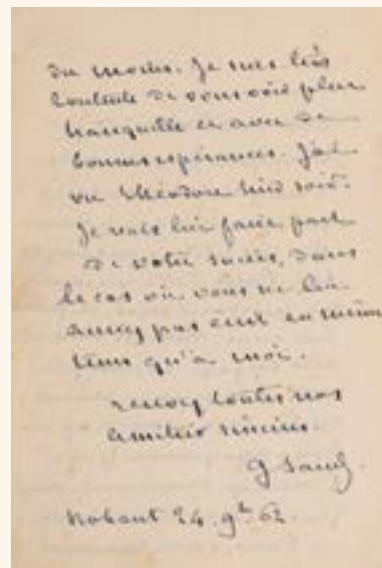 du moins. Je suis très
contente de vous voir plus
tranquille et avec de
bonnes espérances. J'ai
vu Théodore hier soir.
Je vais lui faire part
de votre succès, dans
le cas où vous ne lui
auriez pas écrit en même
tems qu'à moi.
recevez toutes nos
amitiés sincères.
G Sand.
Nohant 24 9bre 62